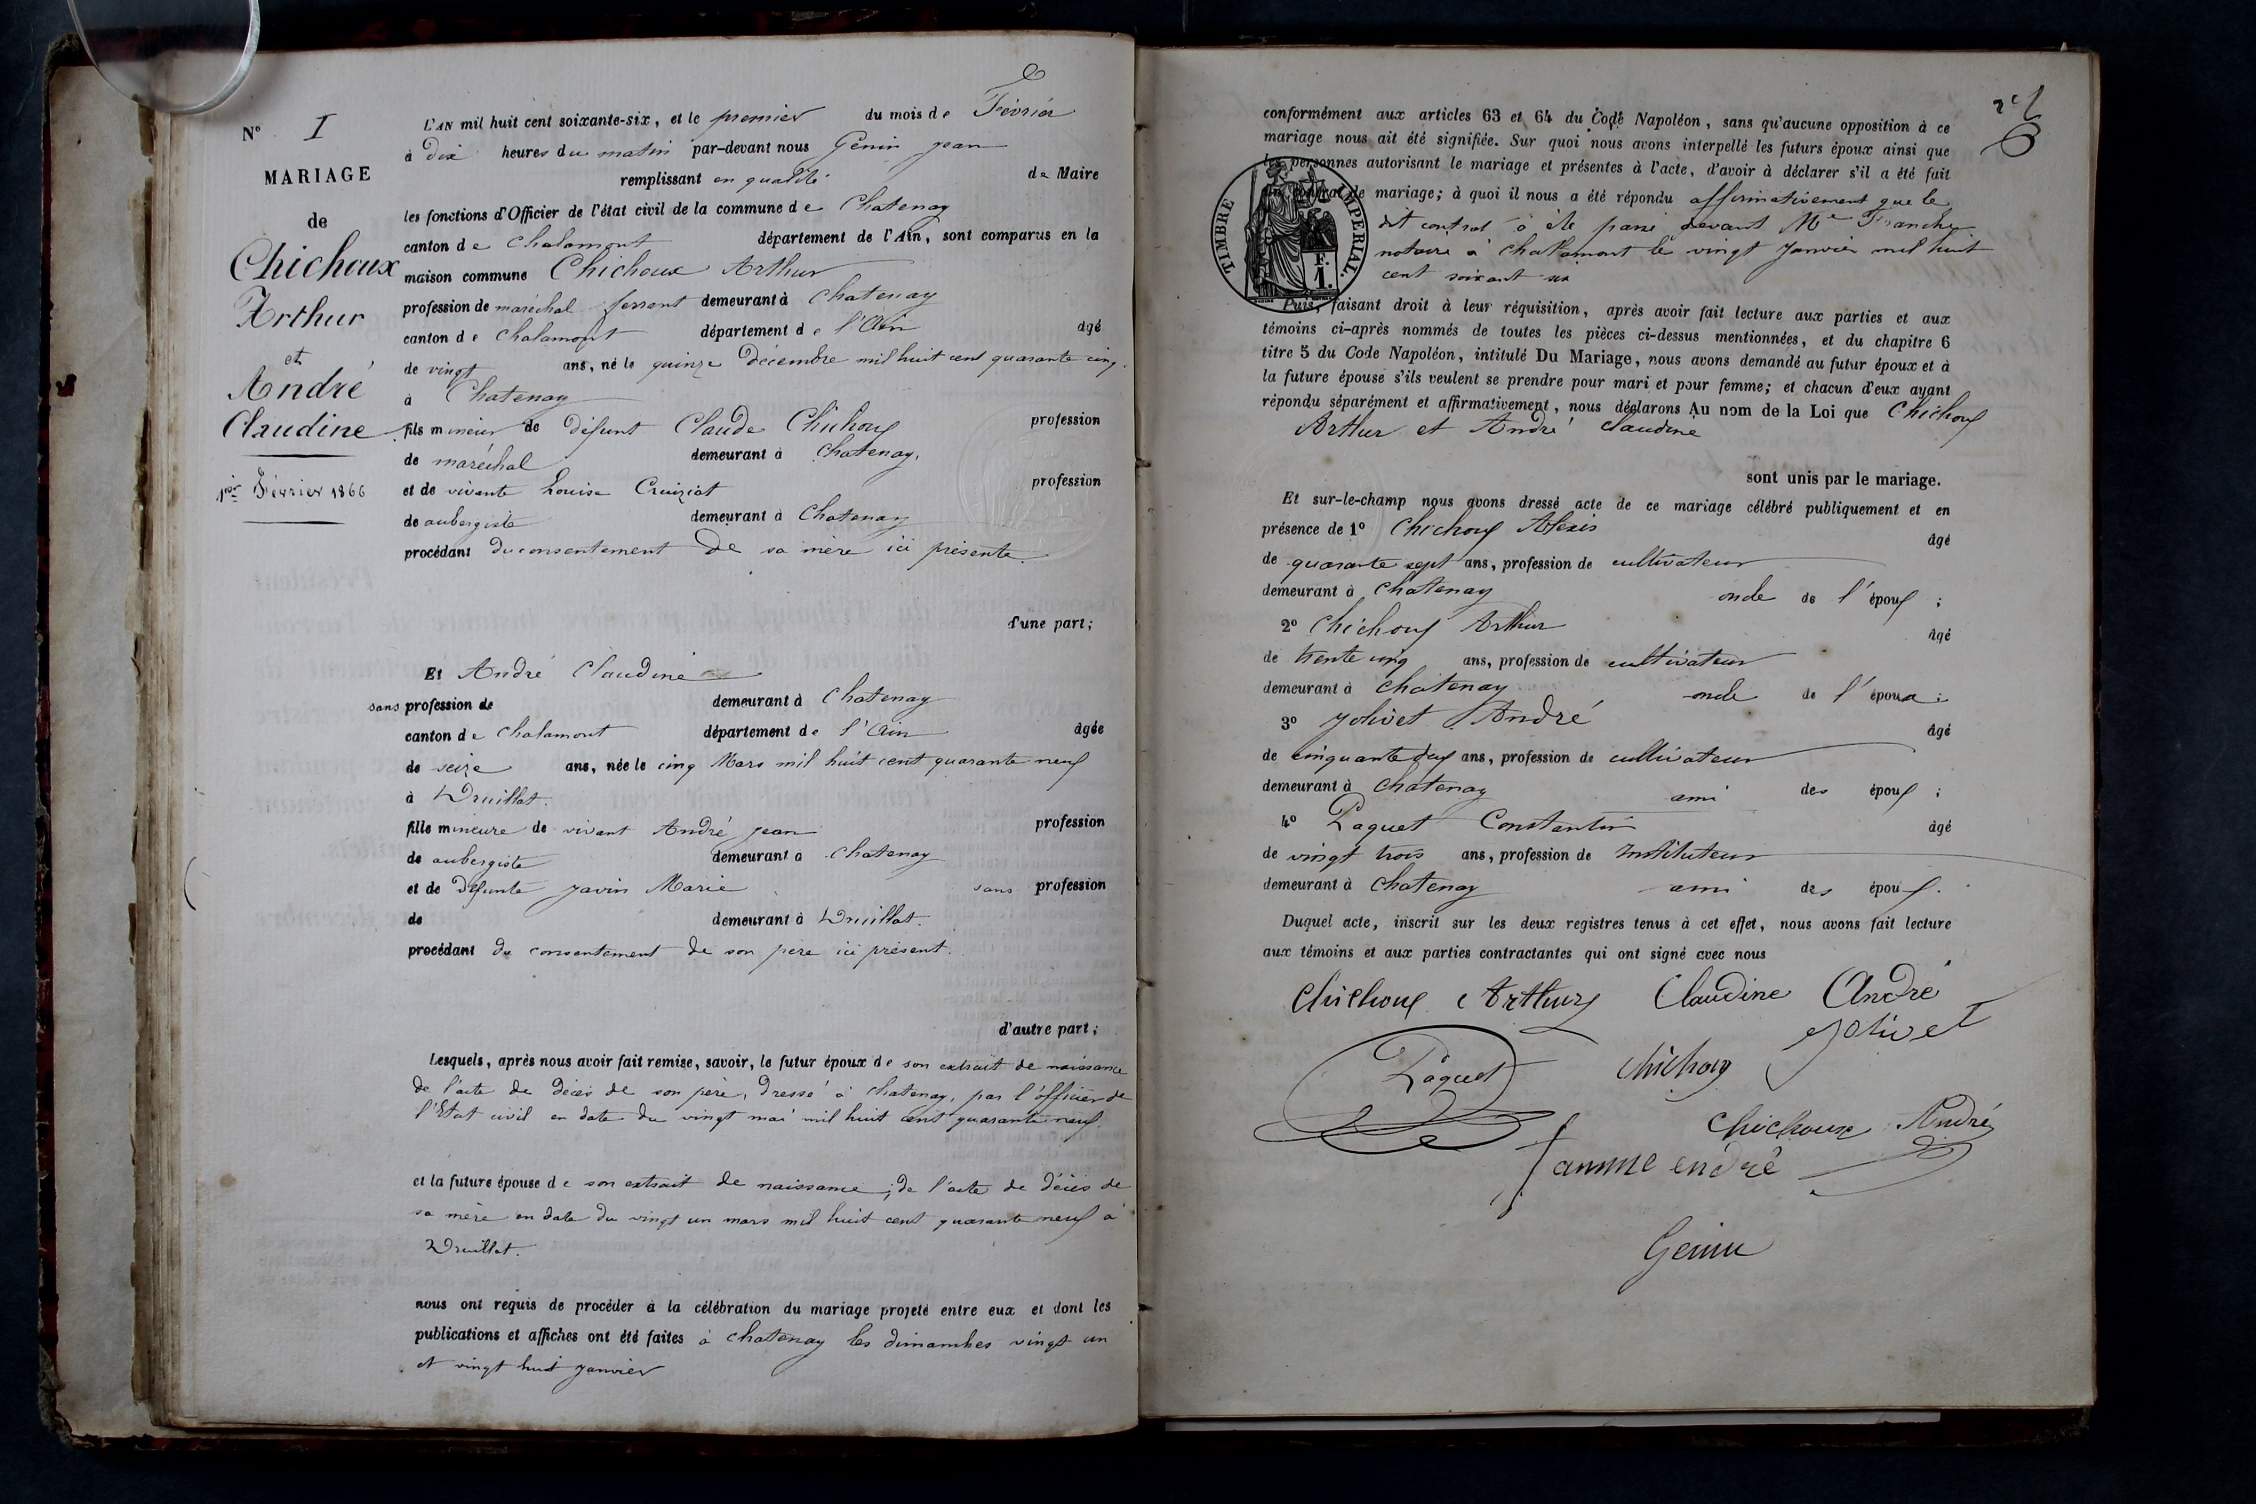 N° 1
MARIAGE
de
Chichoux
Arthur
et
André
Claudine
1er Février 1866
L'AN mil huit cent soixante-six, et le premier du mois de Février
à Dix heures du matin par-devant nous Génin Jean
remplissant en qualité de Maire
les fonctions d'Officier de l'état civil de la commune de Chatenay
canton de Chalamont département de l'Ain, sont comparus en la
maison commune Chichoux Arthur
profession de maréchal ferrant demeurant à Chatenay
canton de Chalamont département de l'Ain âgé
de vingt ans, né le quinze Décembre mil huit cent quarante cinq.
à Chatenay
fils mineur de défunt Claude Chichoux profession
de maréchal demeurant à Chatenay.
et de vivante Louise Cruiziat profession
de aubergiste demeurant à Chatenay
procédant du consentement de sa mère ici présente.
d'une part;
Et André Claudine
sans profession de demeurant à Chatenay
canton de Chalamont département de l'Ain âgée
de seize ans, née le cinq Mars mil huit cent quarante neuf
à Druillat.
fille mineure de vivant André Jean profession
de aubergiste demeurant à Chatenay
et de défunte Javin Marie sans profession
de demeurant à Druillat.
procédant du consentement de son père ici présent.
d'autre part;
Lesquels, après nous avoir fait remise, savoir, le futur époux de son extrait de naissance
de l'acte de décès de son père, dressé à Chatenay, par l'officier de
l'Etat civil en date du vingt mai mil huit cent quarante neuf.
et la future épouse de son extrait de naissance; de l'acte de décès de
sa mère en date du vingt un mars mil huit cent quarante neuf à
Druillat.
nous ont requis de procéder à la célébration du mariage projeté entre eux et dont les
publications et affiches ont été faites à Chatenay les dimanches vingt un
et vingt huit janvier
conformément aux articles 63 et 64 du Code Napoléon, sans qu'aucune opposition à ce
mariage nous ait été signifiée. Sur quoi nous avons interpellé les futurs époux ainsi que
les personnes autorisant le mariage et présentes à l'acte, d'avoir à déclarer s'il a été fait
un contrat de mariage; à quoi il nous a été répondu affirmativement que le
dit contrat à été passé devant Me Franchi
notaire à Chalamont le vingt Janvier mil huit
cent soixant six
TIMBRE IMPERIAL.
F.
1.
Puis, faisant droit à leur réquisition, après avoir fait lecture aux parties et aux
témoins ci-après nommés de toutes les pièces ci-dessus mentionnées, et du chapitre 6
titre 5 du Code Napoléon, intitulé Du Mariage, nous avons demandé au futur époux et à
la future épouse s'ils veulent se prendre pour mari et pour femme; et chacun d'eux ayant
répondu séparément et affirmativement, nous déclarons Au nom de la Loi que Chichoux
Arthur et André Claudine
sont unis par le mariage.
Et sur-le-champ nous avons dressé acte de ce mariage célébré publiquement et en
présence de 1° Chichoux Alexis âgé
de quarante sept ans, profession de cultivateur
demeurant à Chatenay oncle de l'époux;
2° Chichoux Arthur âgé
de trente cinq ans, profession de cultivateur
demeurant à Chatenay oncle de l'époux;
3° Jolivet André âgé
de cinquante deux ans, profession de cultivateur
demeurant à Chatenay ami des époux;
4° Paquet Constantin âgé
de vingt trois ans, profession de Instituteur
demeurant à Chatenay ami des époux.
Duquel acte, inscrit sur les deux registres tenus à cet effet, nous avons fait lecture
aux témoins et aux parties contractantes qui ont signé avec nous
Chichoux Arthur Claudine André
Jolivet
Paquet Chichoux
Chichoux André
Genin